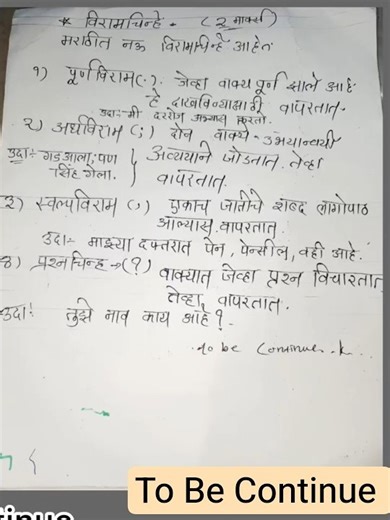 * विरामचिन्हे - (२ मार्क्स)
मराठीत नऊ विरामचिन्हे आहेत
१) पूर्णविराम(.) जेव्हा वाक्य पूर्ण झाले आहे
हे दाखविण्यासाठी वापरतात.
उदा:- मी दररोज अभ्यास करतो.
२) अर्धविराम (;) दोन वाक्ये - उभयान्वयी
अव्ययाने जोडतात. तेव्हा
वापरतात.
उदा:- गड आला; पण
सिंह गेला.
३) स्वल्पविराम (,) एकाच जातीचे शब्द लागोपाठ
आल्यास वापरतात.
उदा:- माझ्या दफ्तरात पेन, पेन्सील, वही आहे.
४) प्रश्नचिन्ह → (?) वाक्यात जेव्हा प्रश्न विचारतात
तेव्हा वापरतात.
उदा:- तुझे नाव काय आहे?
to be continue
To Be Continue